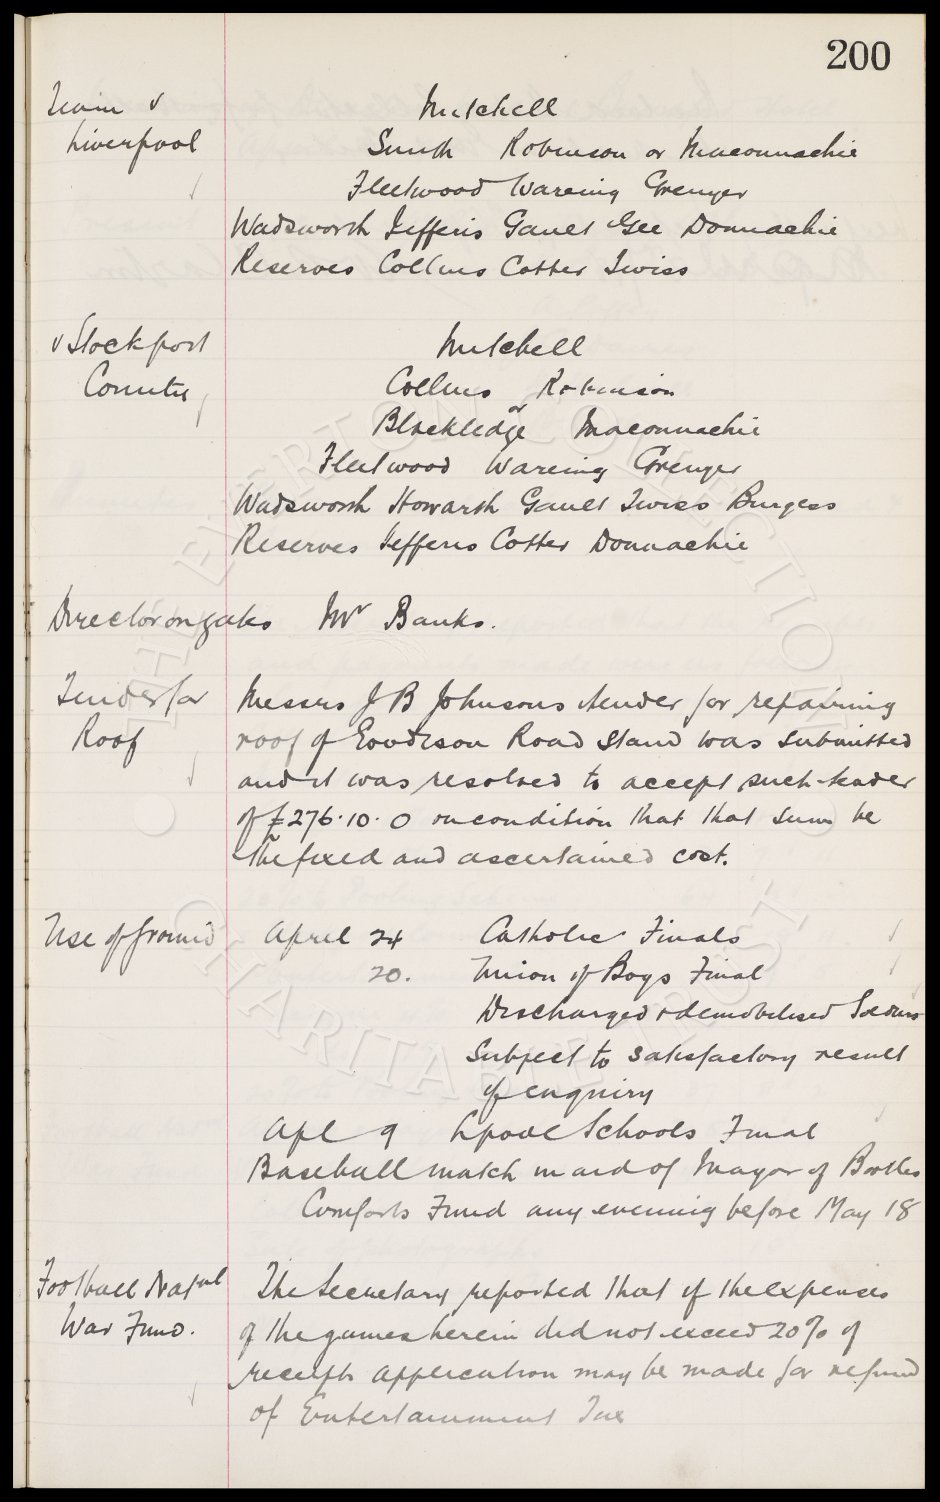 200
Team v Mitchell
Liverpool Smith Robinson or Maconnachie
Fleetwood Wareing Grenyer
Wadsworth Jefferis Gault Gee Donnachie
Reserves Collins Cotter Twiss
v Stockport Mitchell
County Collins Robinson
or
Blackledge Maconnachie
Fleetwood Wareing Grenyer
Wadsworth Howarth Gault Twiss Burgess
Reserves Jefferis Cotter Donnachie
Director on gates Mr Banks.
Tender for Messrs J B Johnsons tender for repairing
Roof roof of Goodison Road Stand was submitted
and it was resolved to accept such tender
of £276.10.0 on condition that that sum be
the fixed and ascertained cost.
Use of ground April 24 Catholic Finals
20. Union of Boys Final
Discharged & demobilised Soldiers
Subject to satisfactory result
of enquiry
Apl 9 Lpool Schools Final
Baseball match in aid of Mayor of Bootles
Comforts Fund any evening before May 18
Football Natnl The Secretary reported that if the expenses
War Fund. of the games herein did not exceed 20% of
receipts application may be made for refund
of Entertainment Tax
THE EVERTON COLLECTION
CHARITABLE TRUST